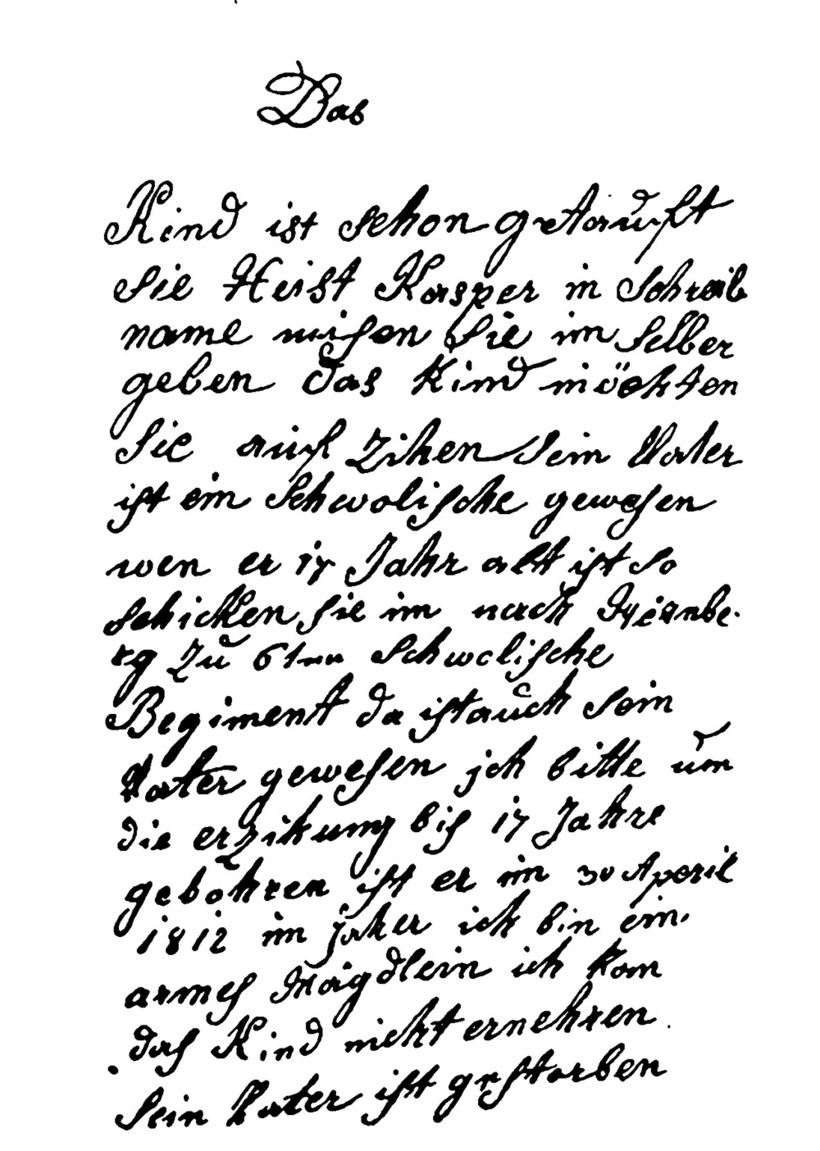 Das
Kind ist schon getauft
Sie Heist Kasper in Schreib
name misen Sie im selber
geben das Kind möchten
Sie auf Zihen Sein Vater
ist ein Schwolische gewesen
wen er 17 Jahr alt ist so
schicken sie im nach Nirnbe
rg Zu 6ten Schwolische
Begiment da ist auch sein
Vater gewesen ich bitte um
die erzikung bis 17 Jahre
gebohren ist er im 30 Aperil
1812 im jaher ich bin ein
armes Mägdlein ich kan
das Kind nicht ernehren
Sein Vater ist gestorben